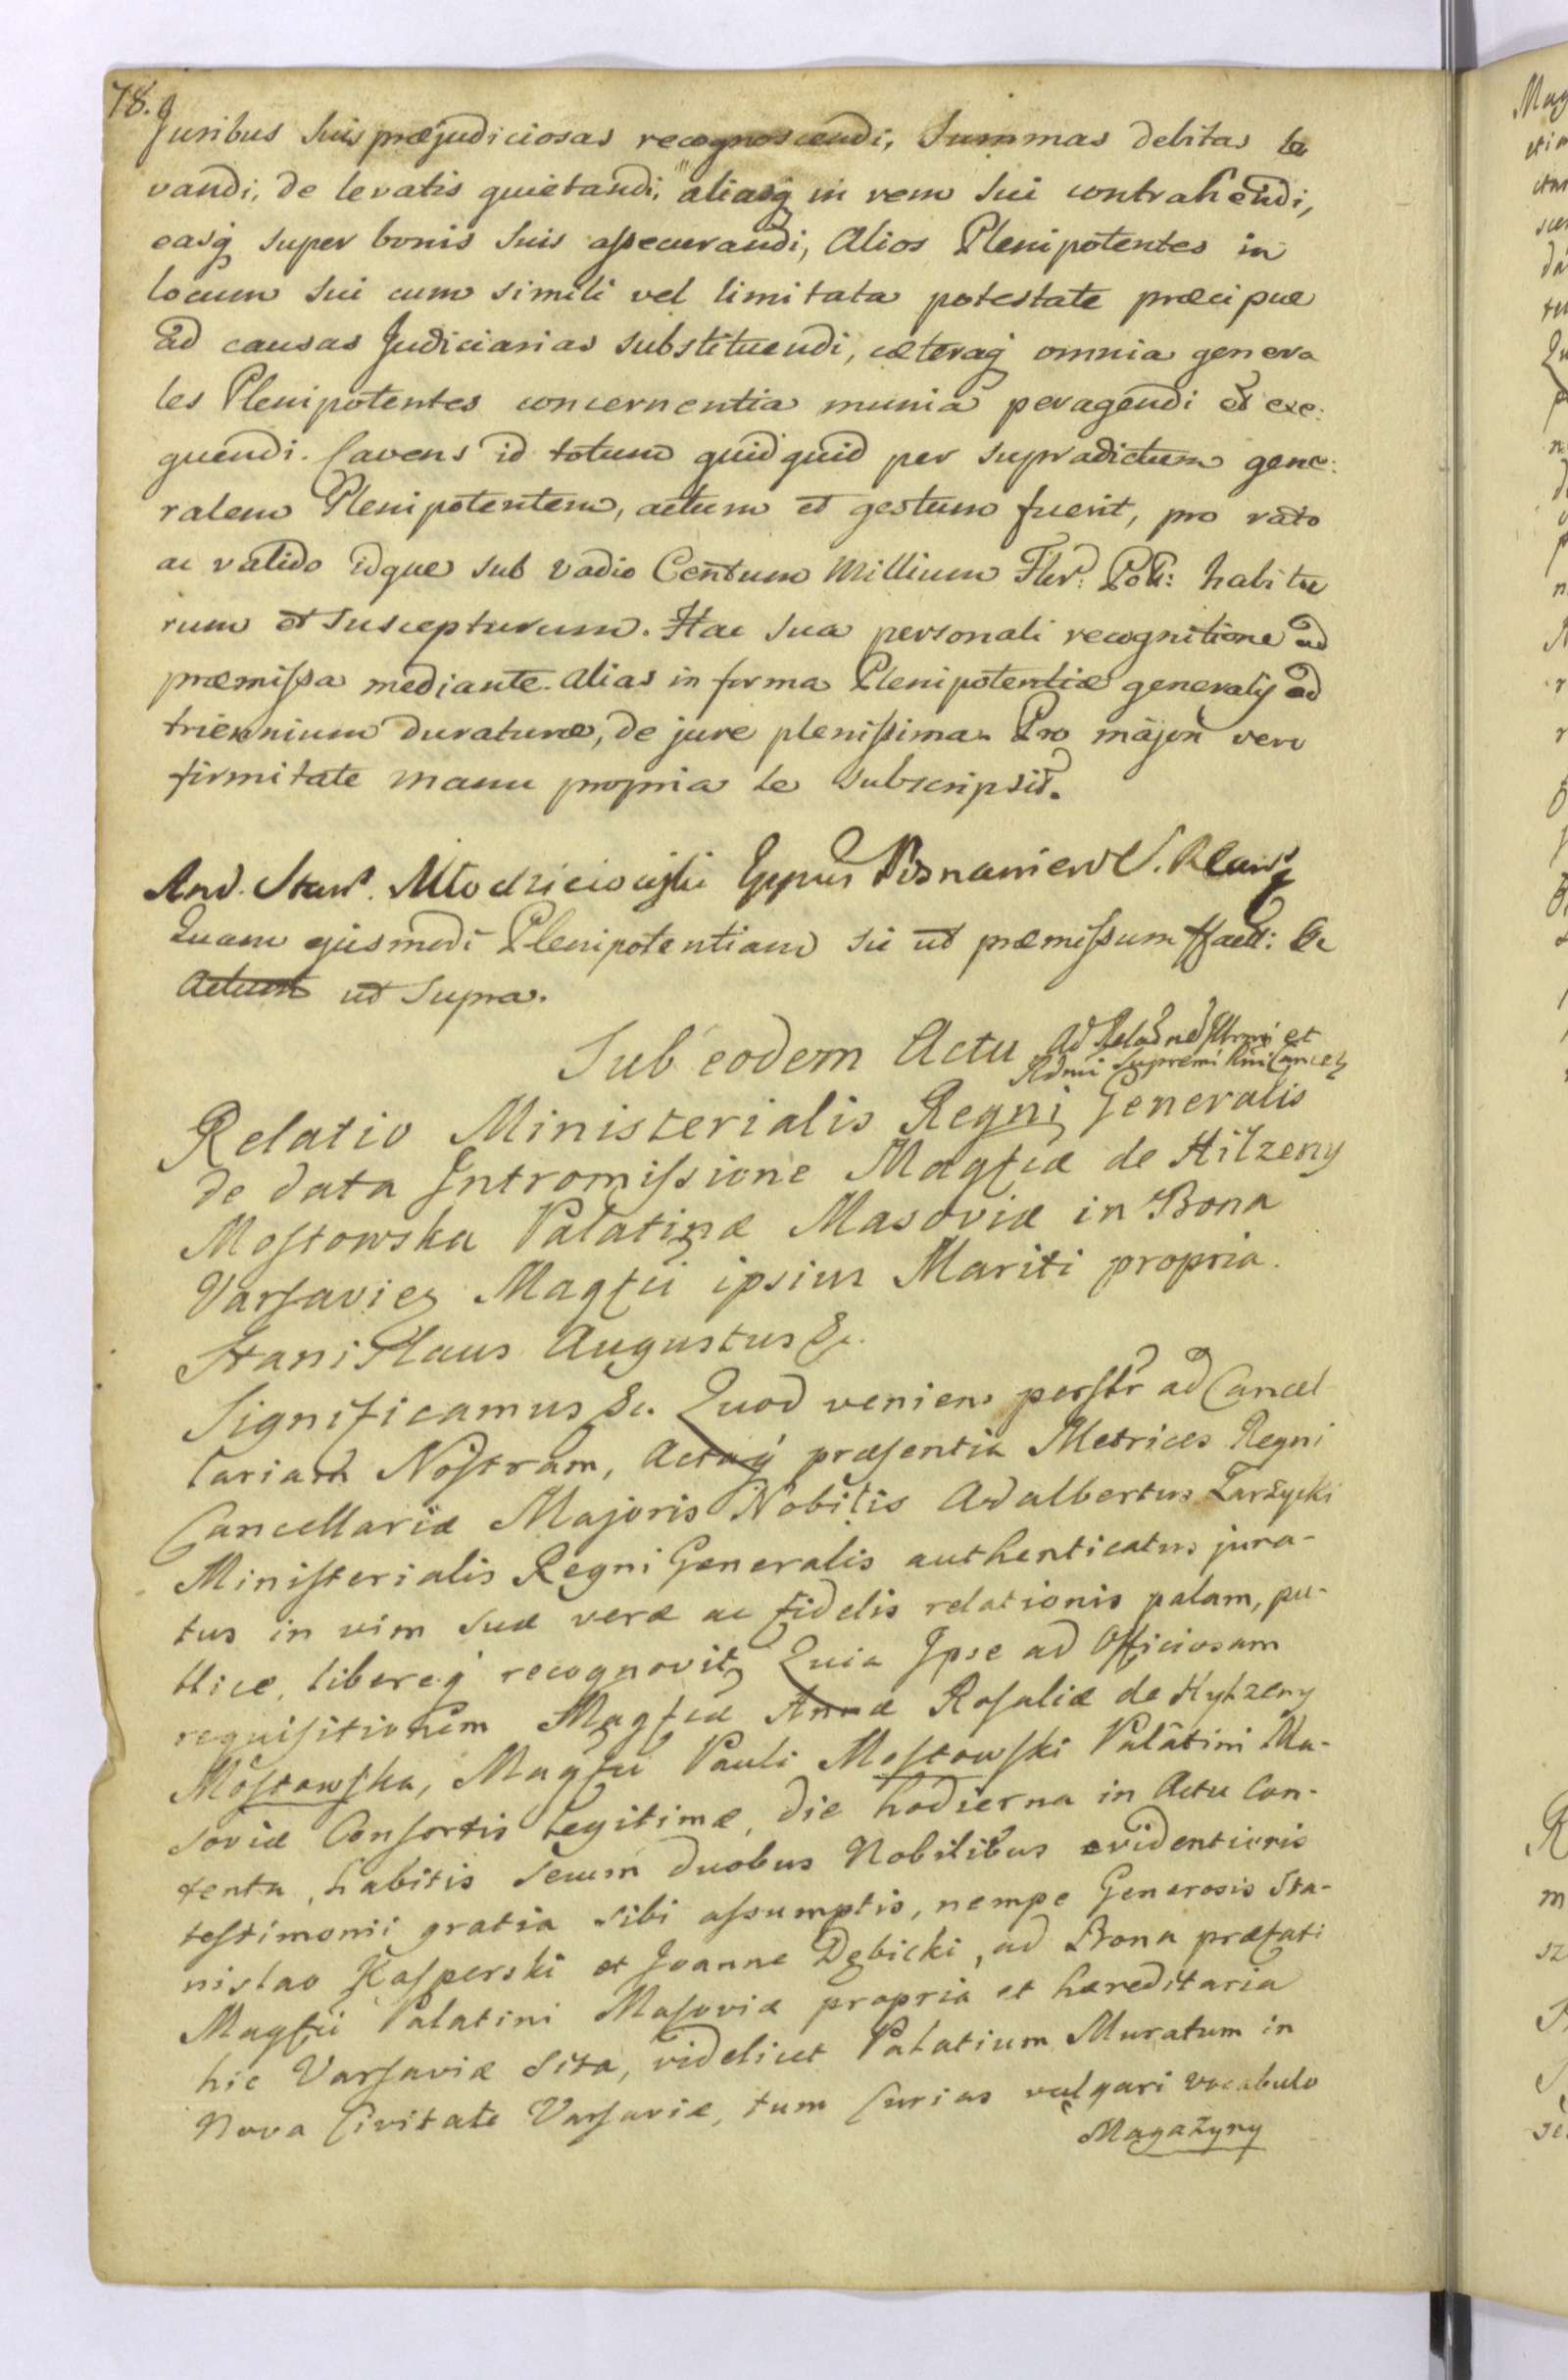 78.
Juribus suis præjudiciosas recognoscendi, Summas debitas le
vandi, de levatis quietandi, aliasq in rem sui contrahendi,
easq super bonis suis assecurandi, Alios Plenipotentes in
locum sui cum simili vel limitata potestate præcipue
ad causas Judiciarias substituendi, cæteraq omnia genera
les Plenipotentes concernentia munia peragendi et exe:
quendi. Cavens id totum quidquid per supradictum gene:
ralem Plenipotentem, actum et gestum fuerit, pro rato
ac valido idque sub vadio Centum Millium Flor: Pol: habitu
rum et suscepturum. Hac sua personali recognitione ad
præmissa mediante. alias in forma Plenipotentiæ generalis ad
triennium duraturæ, de jure plenissima. Pro majori vero
firmitate manu propria se subscripsit.
And. Stan. Młodzieiowski Eppus Posnanien
Quam ejusmodi Plenipotentiam sic ut præmissum ffact: &c
Actum ut Supra.
Sub eodem Actu Ad Relaõnẽ Illrmi et
Rdmi Supremi Rni Cancel
Relatio Ministerialis Regni Generalis
de data Intromissione Magfcæ de Hilzeny
Mostowska Palatinæ Masoviæ in Bona
Varsavien Magfci ipsius Mariti propria.
Stanislaus Augustus &c.
Significamus &c. Quod veniens persltr ad Cancel
lariam Nostram, Actaq præsentia Metrices Regni
Cancellariæ Majoris Nobilis Adalbertus Zarzycki
Ministerialis Regni Generalis authenticatus jura-
tus in vim suæ veræ ac fidelis relationis palam, pu-
blice, libereq recognovit, Quia Ipse ad Officiosam
requisitionem Magfcæ Annæ Rosaliæ de Hylzeny
Mostowska, Magfci Pauli Mostowski Palatini Ma-
soviæ Consortis legitimæ, die hodierna in Actu Con-
tenta, habitis secum duobus Nobilibus evidentioris
testimonii gratia sibi assumptis, nempe Generosis Sta-
nislao Kasperski et Joanne Dębicki, ad Bona præfati
Magfci Palatini Masoviæ propria et hæreditaria
hic Varsaviæ sita, videlicet Palatium Muratum in
Nova Civitate Varsaviæ, tum Curias vulgari vocabulo
Magazyny